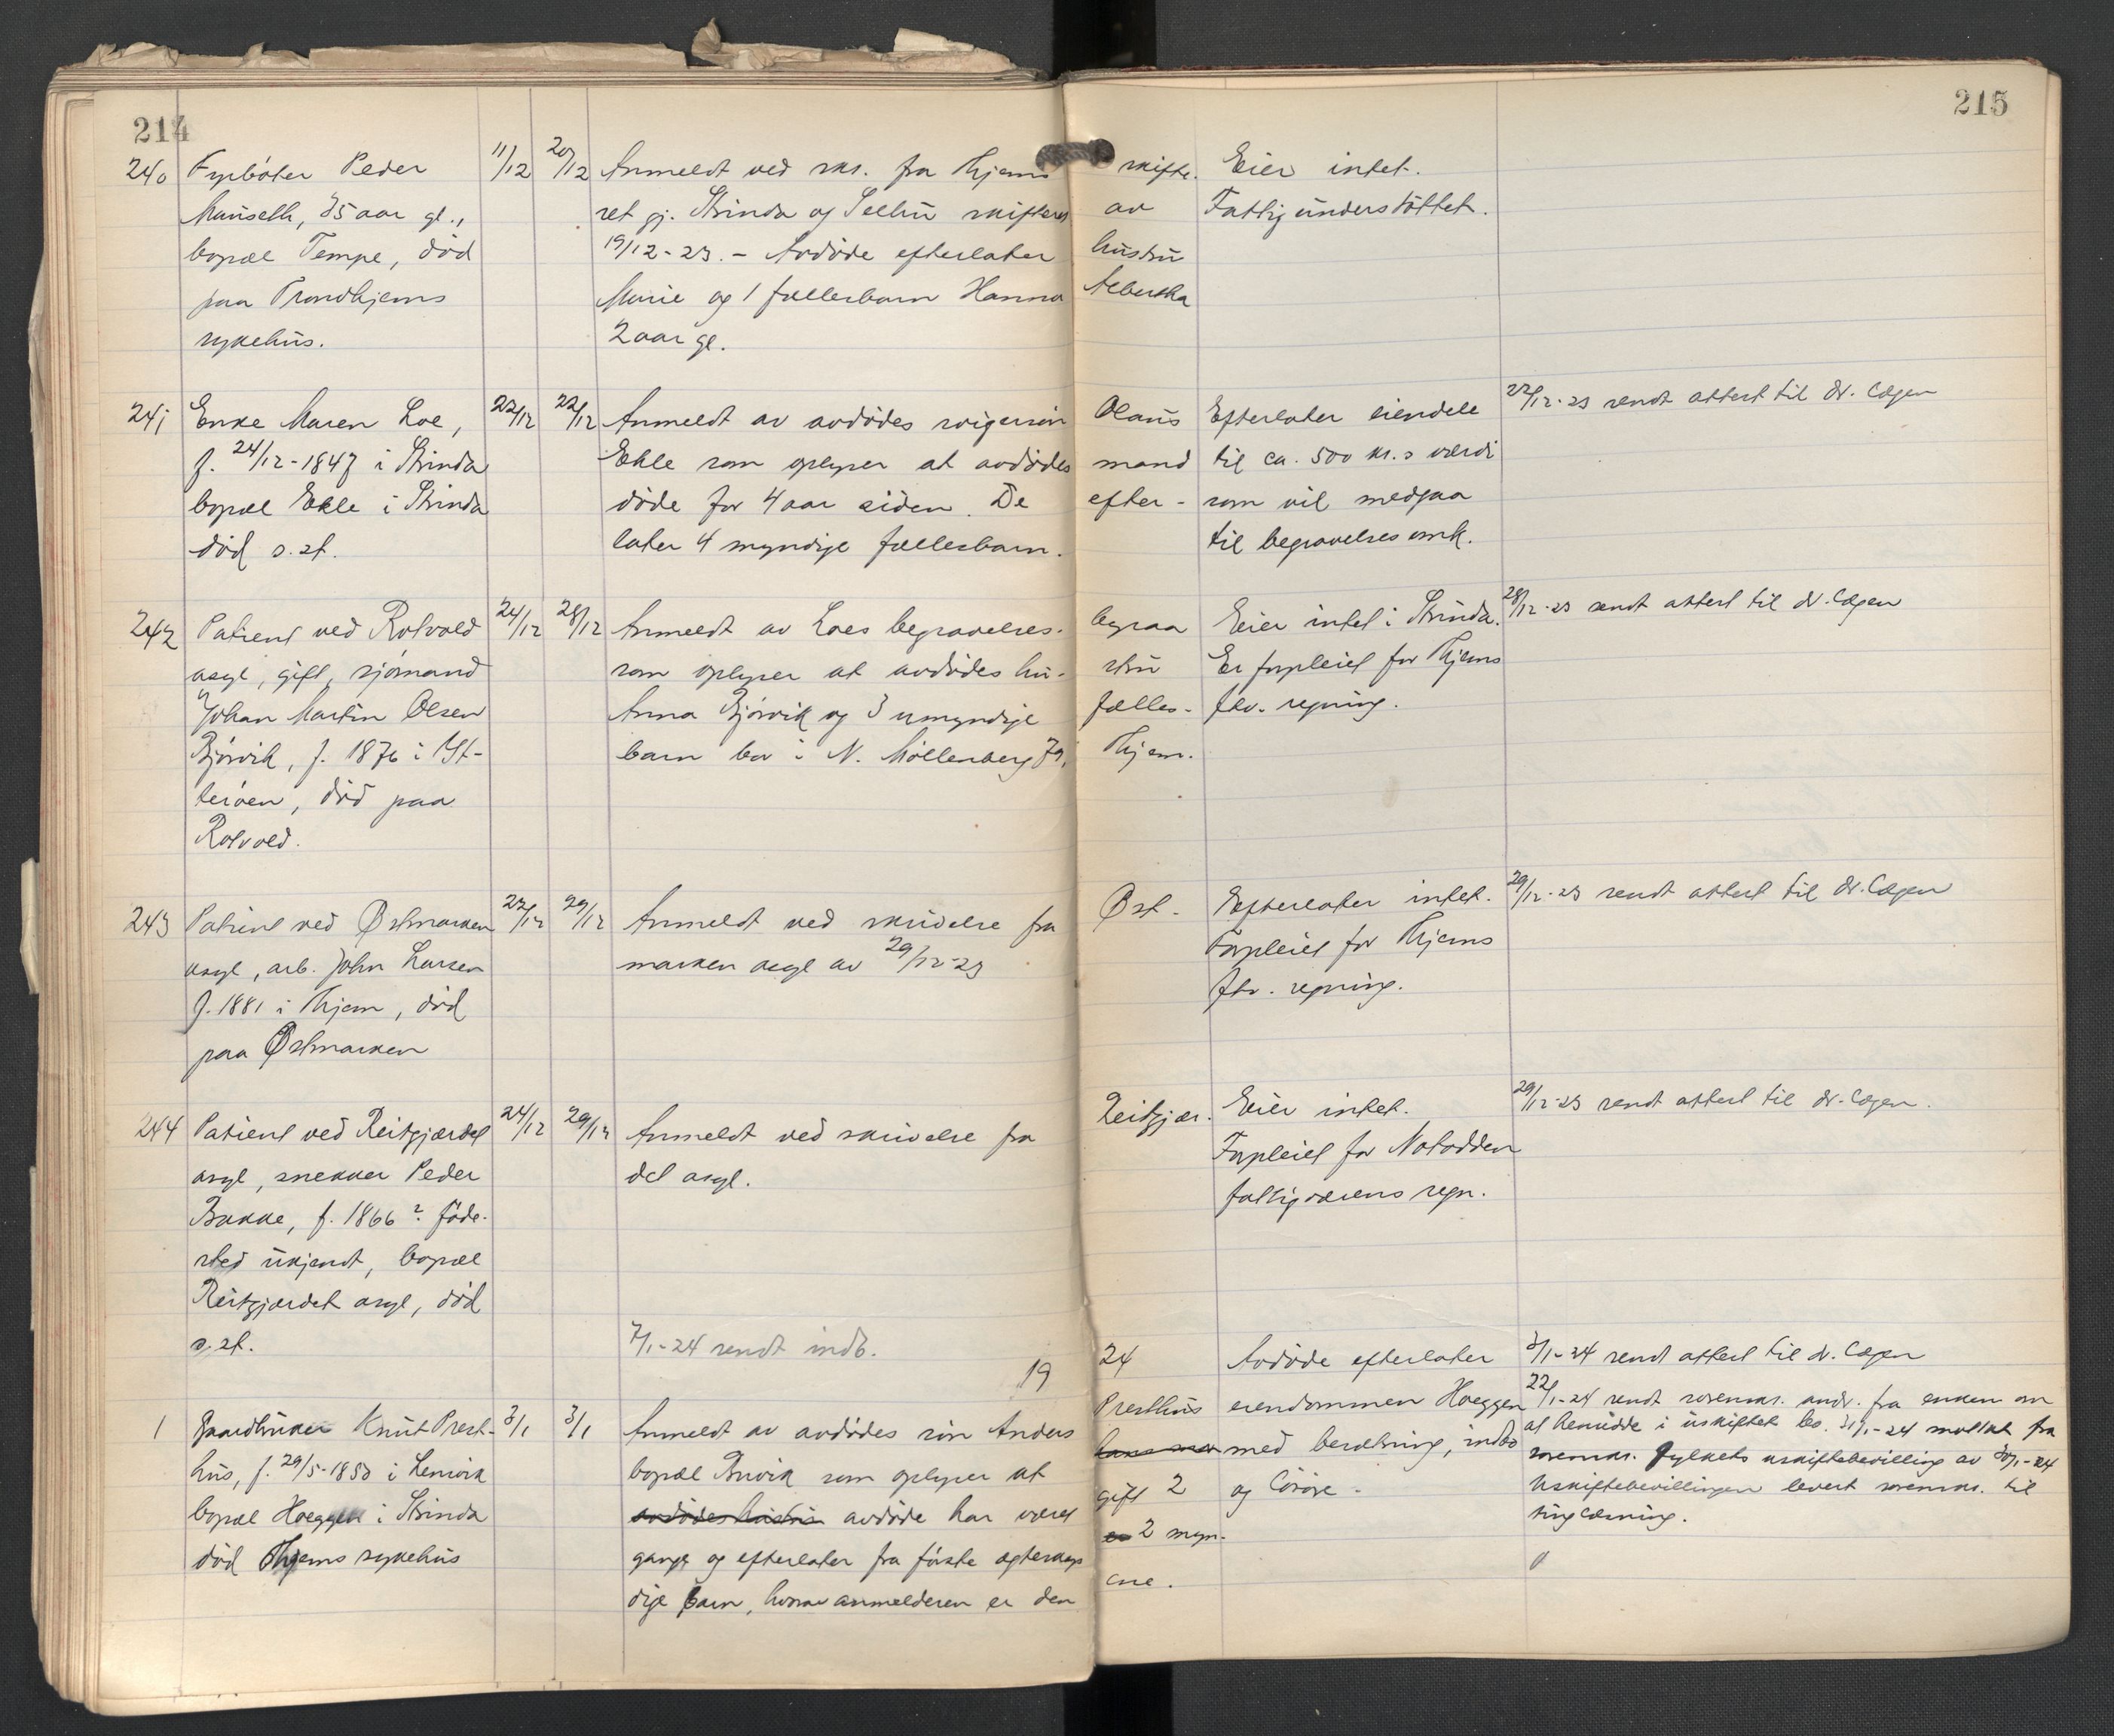 214
215
240 Fyrbøter Peder 11/12 20/12 Anmeldt ved skr. fra Thjems skifte- Eier intet.
Mauseth, 35 aar gl., ret gj. Strinda og Selbu skifteret av Fattigunderstøttet.
bopæl Tempe, død 19/12-23. - Avdøde efterlater hustru
paa Trondhjems Marie og 1 fællesbarn Hanna Albertha
sykehus. 2 aar gl.
241 Enke Maren Loe, 22/12 22/12 Anmeldt av avdødes svigersøn Olaus Efterlater eiendele 22/12-23 sendt attest til dr. Cappelen
f. 24/12-1847 i Strinda Ekle som oplyser at avdødes mand til ca. 500 kr.s værdi
bopæl Ekle i Strinda døde for 4 aar siden. De efter- som vil medgaa
død s.st. later 4 myndige fællesbarn. til begravelses omk.
242 Patient ved Rotvold 24/12 28/12 Anmeldt av Loes begravelses- begraa Eier intet i Strinda. 28/12-23 sendt attest til dr.
asyl, gift, sjømand som oplyser at avdødes hu- stru Er forpleiet for Thjems
Johan Martin Olsen Anna Bjørvik og 3 umyndige fælles- ftv. regning.
Bjørvik, f. 1876 i Yt- barn bor i N. Møllenberg 79, Thjem.
terøen, død paa
Rotvold.
243 Patient ved Østmarken 27/12 29/12 Anmeldt ved skrivelse fra Øst- Efterlater intet. 29/12-23 sendt attest til dr.
asyl, arb. John Larsen marken asyl av 29/12-23 Forpleiet for Thjems
f. 1881 i Thjem, død ftv. regning.
paa Østmarken
244 Patient ved Reitgjærdet 24/12 29/12 Anmeldt ved skrivelse fra Reitgjær- Eier intet. 29/12-23 sendt attest til dr.
asyl, snekker Peder det asyl. Forpleiet for Notodden
Bakke, f. 1866? føde- fattigvæsens regn.
sted ukjendt, bopæl
Reitgjærdet asyl, død
s.st. 7/1-24 sendt indb.
1924
1 Gaardbruker Knut Prest- 3/1 3/1 Anmeldt av avdødes søn Anders Presthus Avdøde efterlater 3/1-24 sendt attest til dr.
hus, f. 29/5-1853 i Lensvik bopæl Buvik som oplyser at eiendommen Hoeggen 22/1-24 sendt sorenskr. andr. fra enken om
bopæl Hoeggen i Strinda avdødes hustru avdøde har været gift 2 med besætning, indbo at hensidde i uskiftet bo. 31/1-24 mottat fra
død Thjems sykehus gange og efterlater fra første egteskap 2 myn- og løsøre. sorenskr. fylkets uskiftebevilling av 30/1-24
dige barn, hvorav anmelderen er den ene. Uskiftebevillingen levert sorenskr. til
tinglæsning.